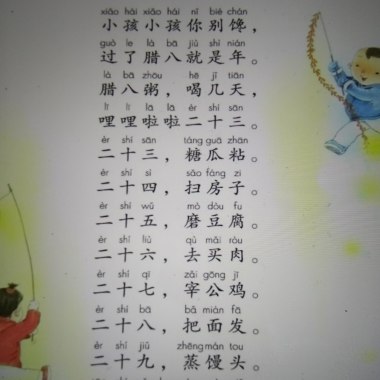 xiǎo hái xiǎo hái nǐ bié chán
小孩小孩你别馋，
guò le là bā jiù shì nián
过了腊八就是年。
là bā zhōu hē jǐ tiān
腊八粥，喝几天，
lī lī lā lā èr shí sān
哩哩啦啦二十三。
èr shí sān táng guā zhān
二十三，糖瓜粘。
èr shí sì sǎo fáng zi
二十四，扫房子。
èr shí wǔ mò dòu fu
二十五，磨豆腐。
èr shí liù qù mǎi ròu
二十六，去买肉。
èr shí qī zǎi gōng jī
二十七，宰公鸡。
èr shí bā bǎ miàn fā
二十八，把面发。
èr shí jiǔ zhēng mán tou
二十九，蒸馒头。